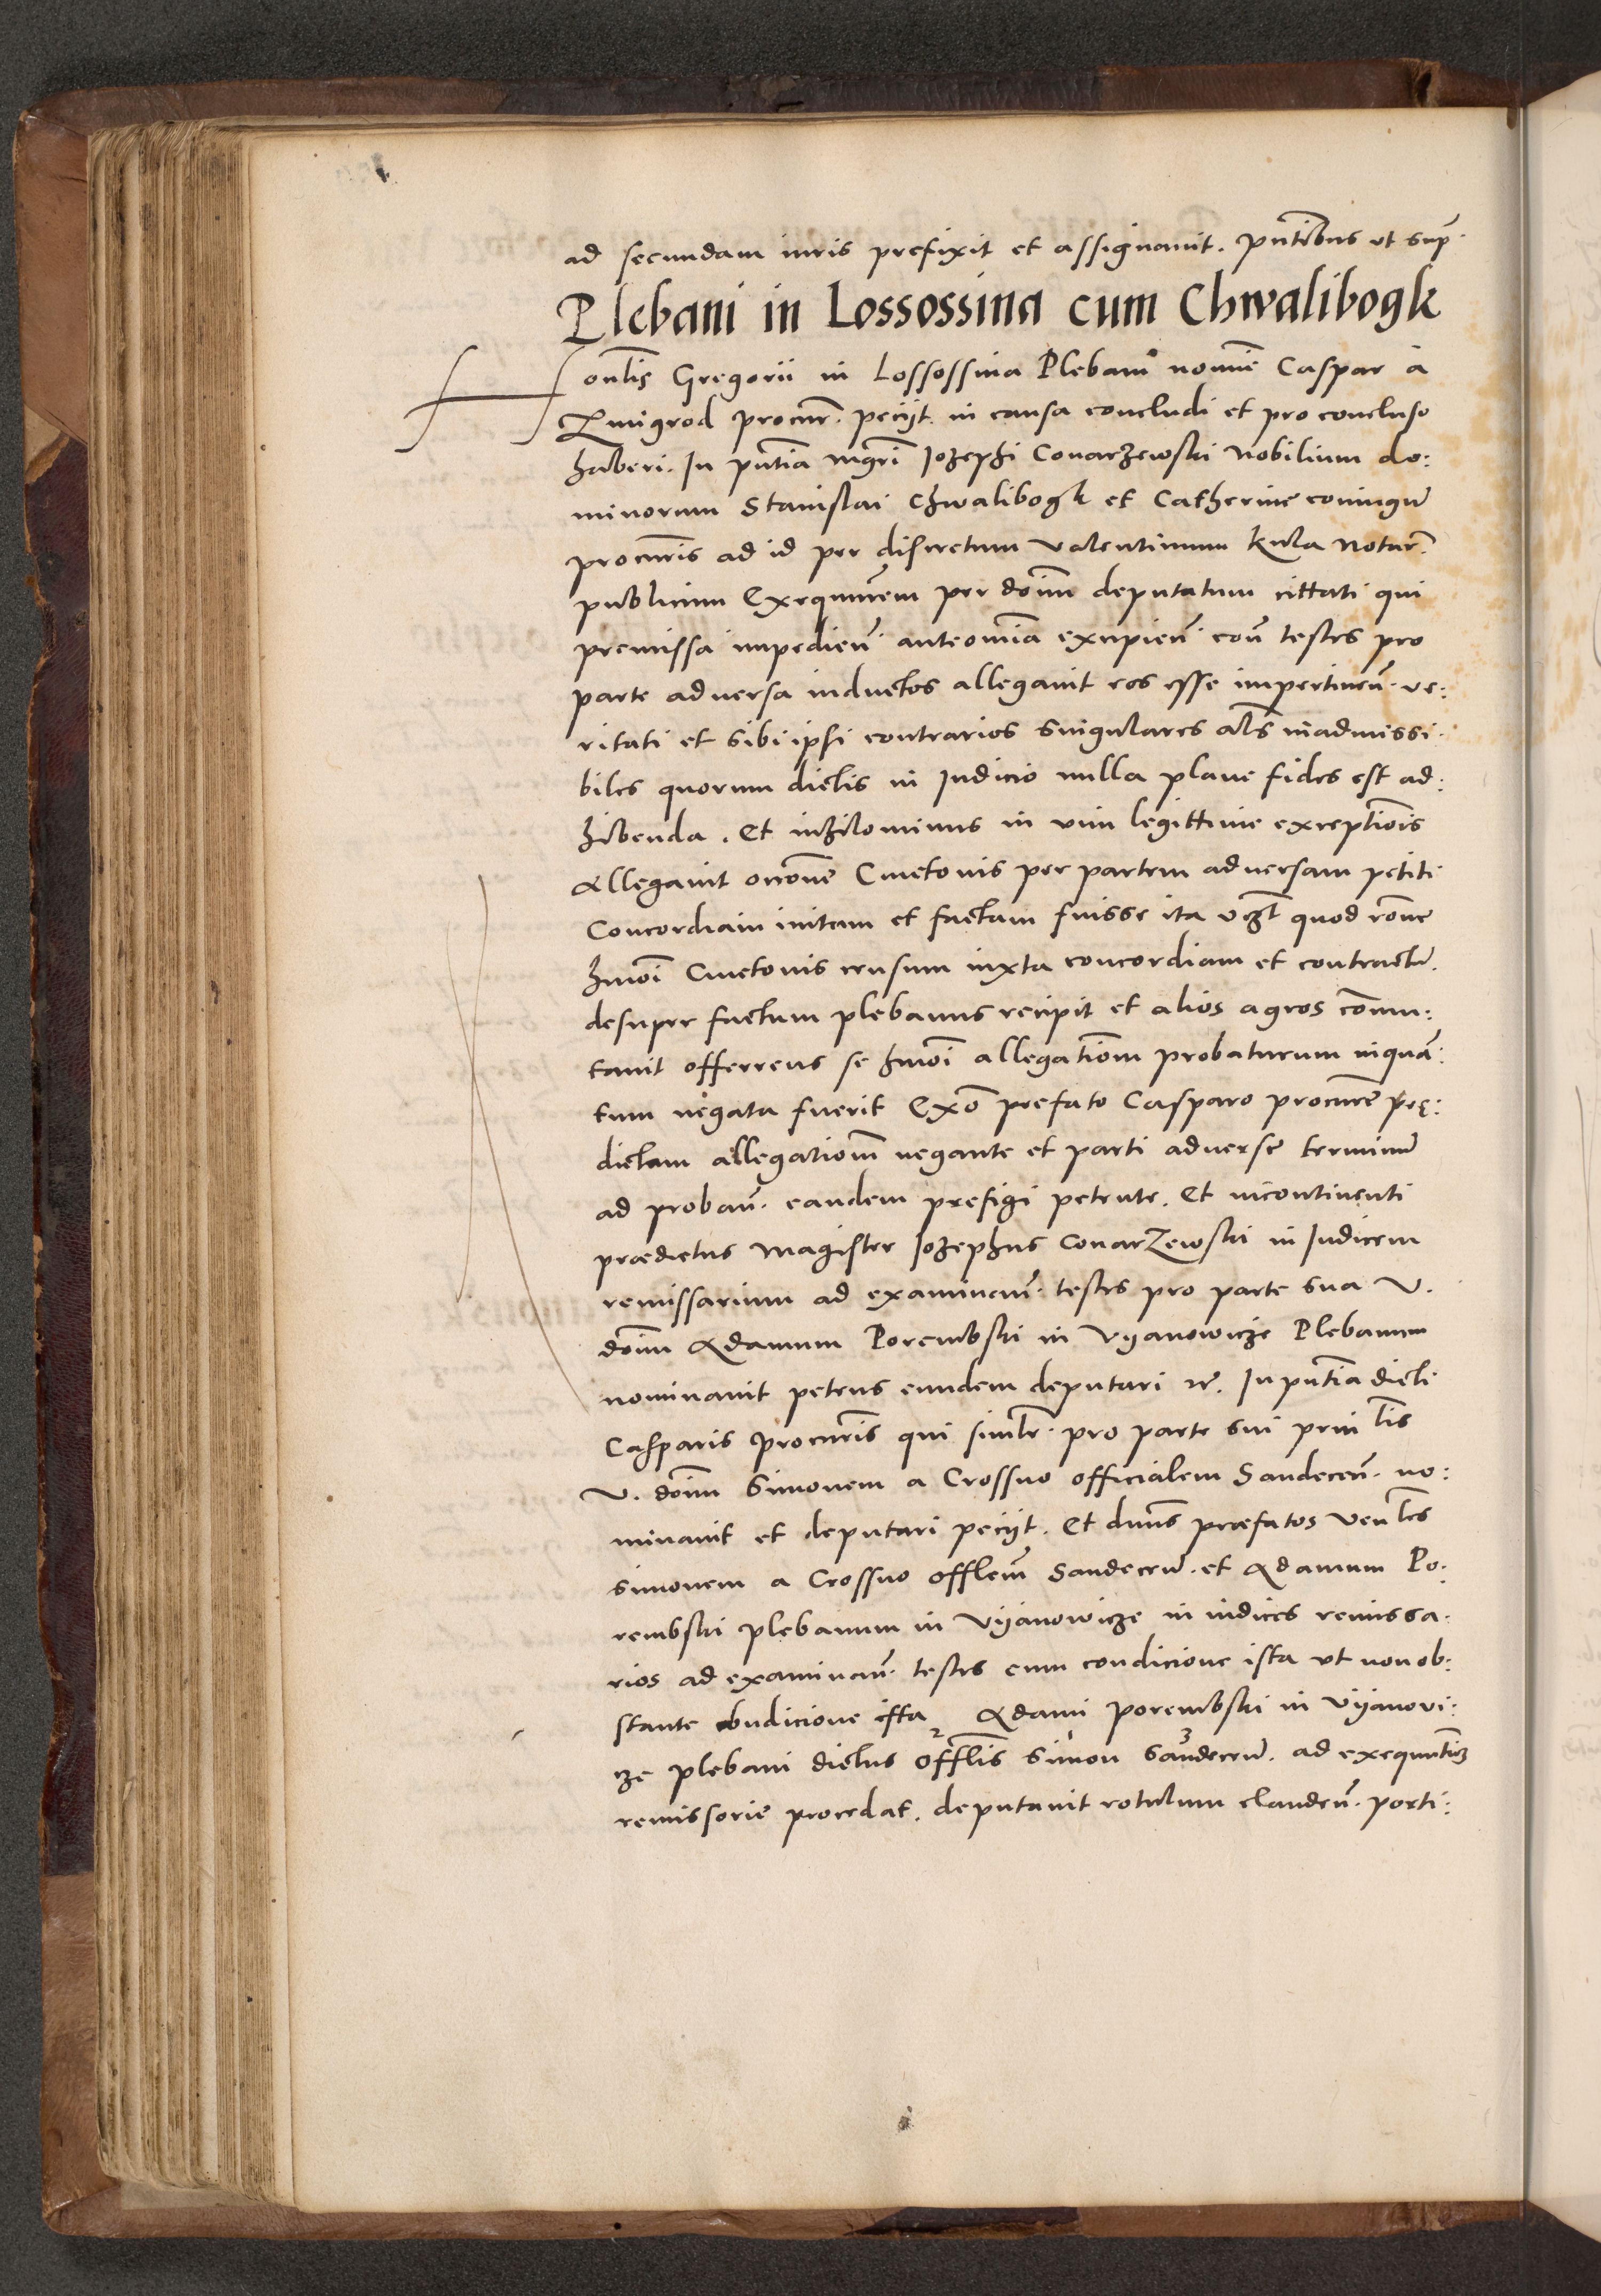 ad secundam iuris prefixit et assignauit. pñtibus vt sup̃.
Plebani in Lossossina cum Chwalibogk
Honlis Gregorii in Lossossina Plebani nomine Caspar a
Zmigrod procur̃. peciit in causa concludi et pro concluso
haberi. In pñtia mgri Iozephi Conarzewski Nobilium do:
minorum Stanislai Chwalibogk et Catherine coniugũ
procuris ad id per discretum Valentinum Kula Notar̃.
publicum Exequutem per dom̃ deputatum cittati qui
premissa impedieñ. anteomia excipieñ. coñ testes pro
parte aduersa inductos allegauit eos esse impertineñ. ve:
ritati et sibi ipsi contrarios singulares als inadmissi:
biles quorum dictis in Iudicio nulla plane fides est ad:
hibenda. Et inhilominus in vim legittime exceptiois
Allegauit occone Cmetonis per partem aduersam petiti
Concordiam initam et factam fuisse ita vczt quod rone
hmoi Cmetonis censum iuxta concordiam et contractũ.
desuper factum plebanus recipit et alios agros commu:
tauit offerrens se hmoi allegationem probaturum inquã:
tum negata fuerit Exo prefato Casparo procure pre:
dictam allegationem negante et parti aduerse terminũ
ad probañ. eandem prefigi petente. Et incontinenti
prædictus Magister Iozephus Conarzewski in Iudicem
remissarium ad examinañ. testes pro parte sua V.
dom̃ Adamum Porembski in Vyanowicze Plebanum
nominauit petens eundem deputari etc. In pñtia dicti
Casparis procuris qui simlr. pro parte sui prinlis
V. dom̃ Simonem a Crossno officialem Sandeceñ. no:
minauit et deputari peciit. Et dnus præfatos Venles
Simonem a Crossno offlem̃ Sandeceñ. et Adamum Po:
rembski plebanum in Vyanowicze in iudices remissa:
rios ad examinañ. testes cum condicione ista vt non ob:
stante condicione ista Adami Porembski in Vyanovi:
cze plebani dictus offlis Simon Sandeceñ. ad exequutionẽ
remissorie procedat. deputauit rotulum claudeñ. porti: